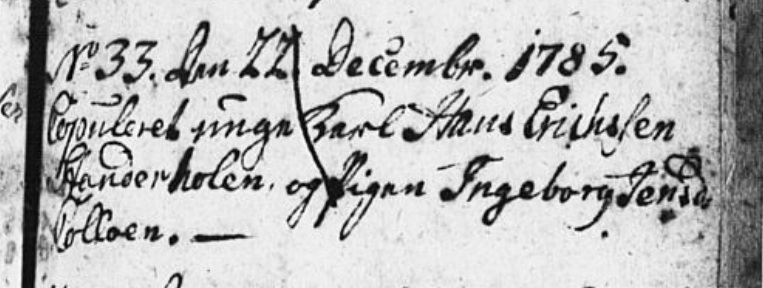 No 33. den 22 Decembr. 1785.
Copuleret unge Karl Hans Erichssen
Handerholen. og Pigen Ingeborg Jensd.